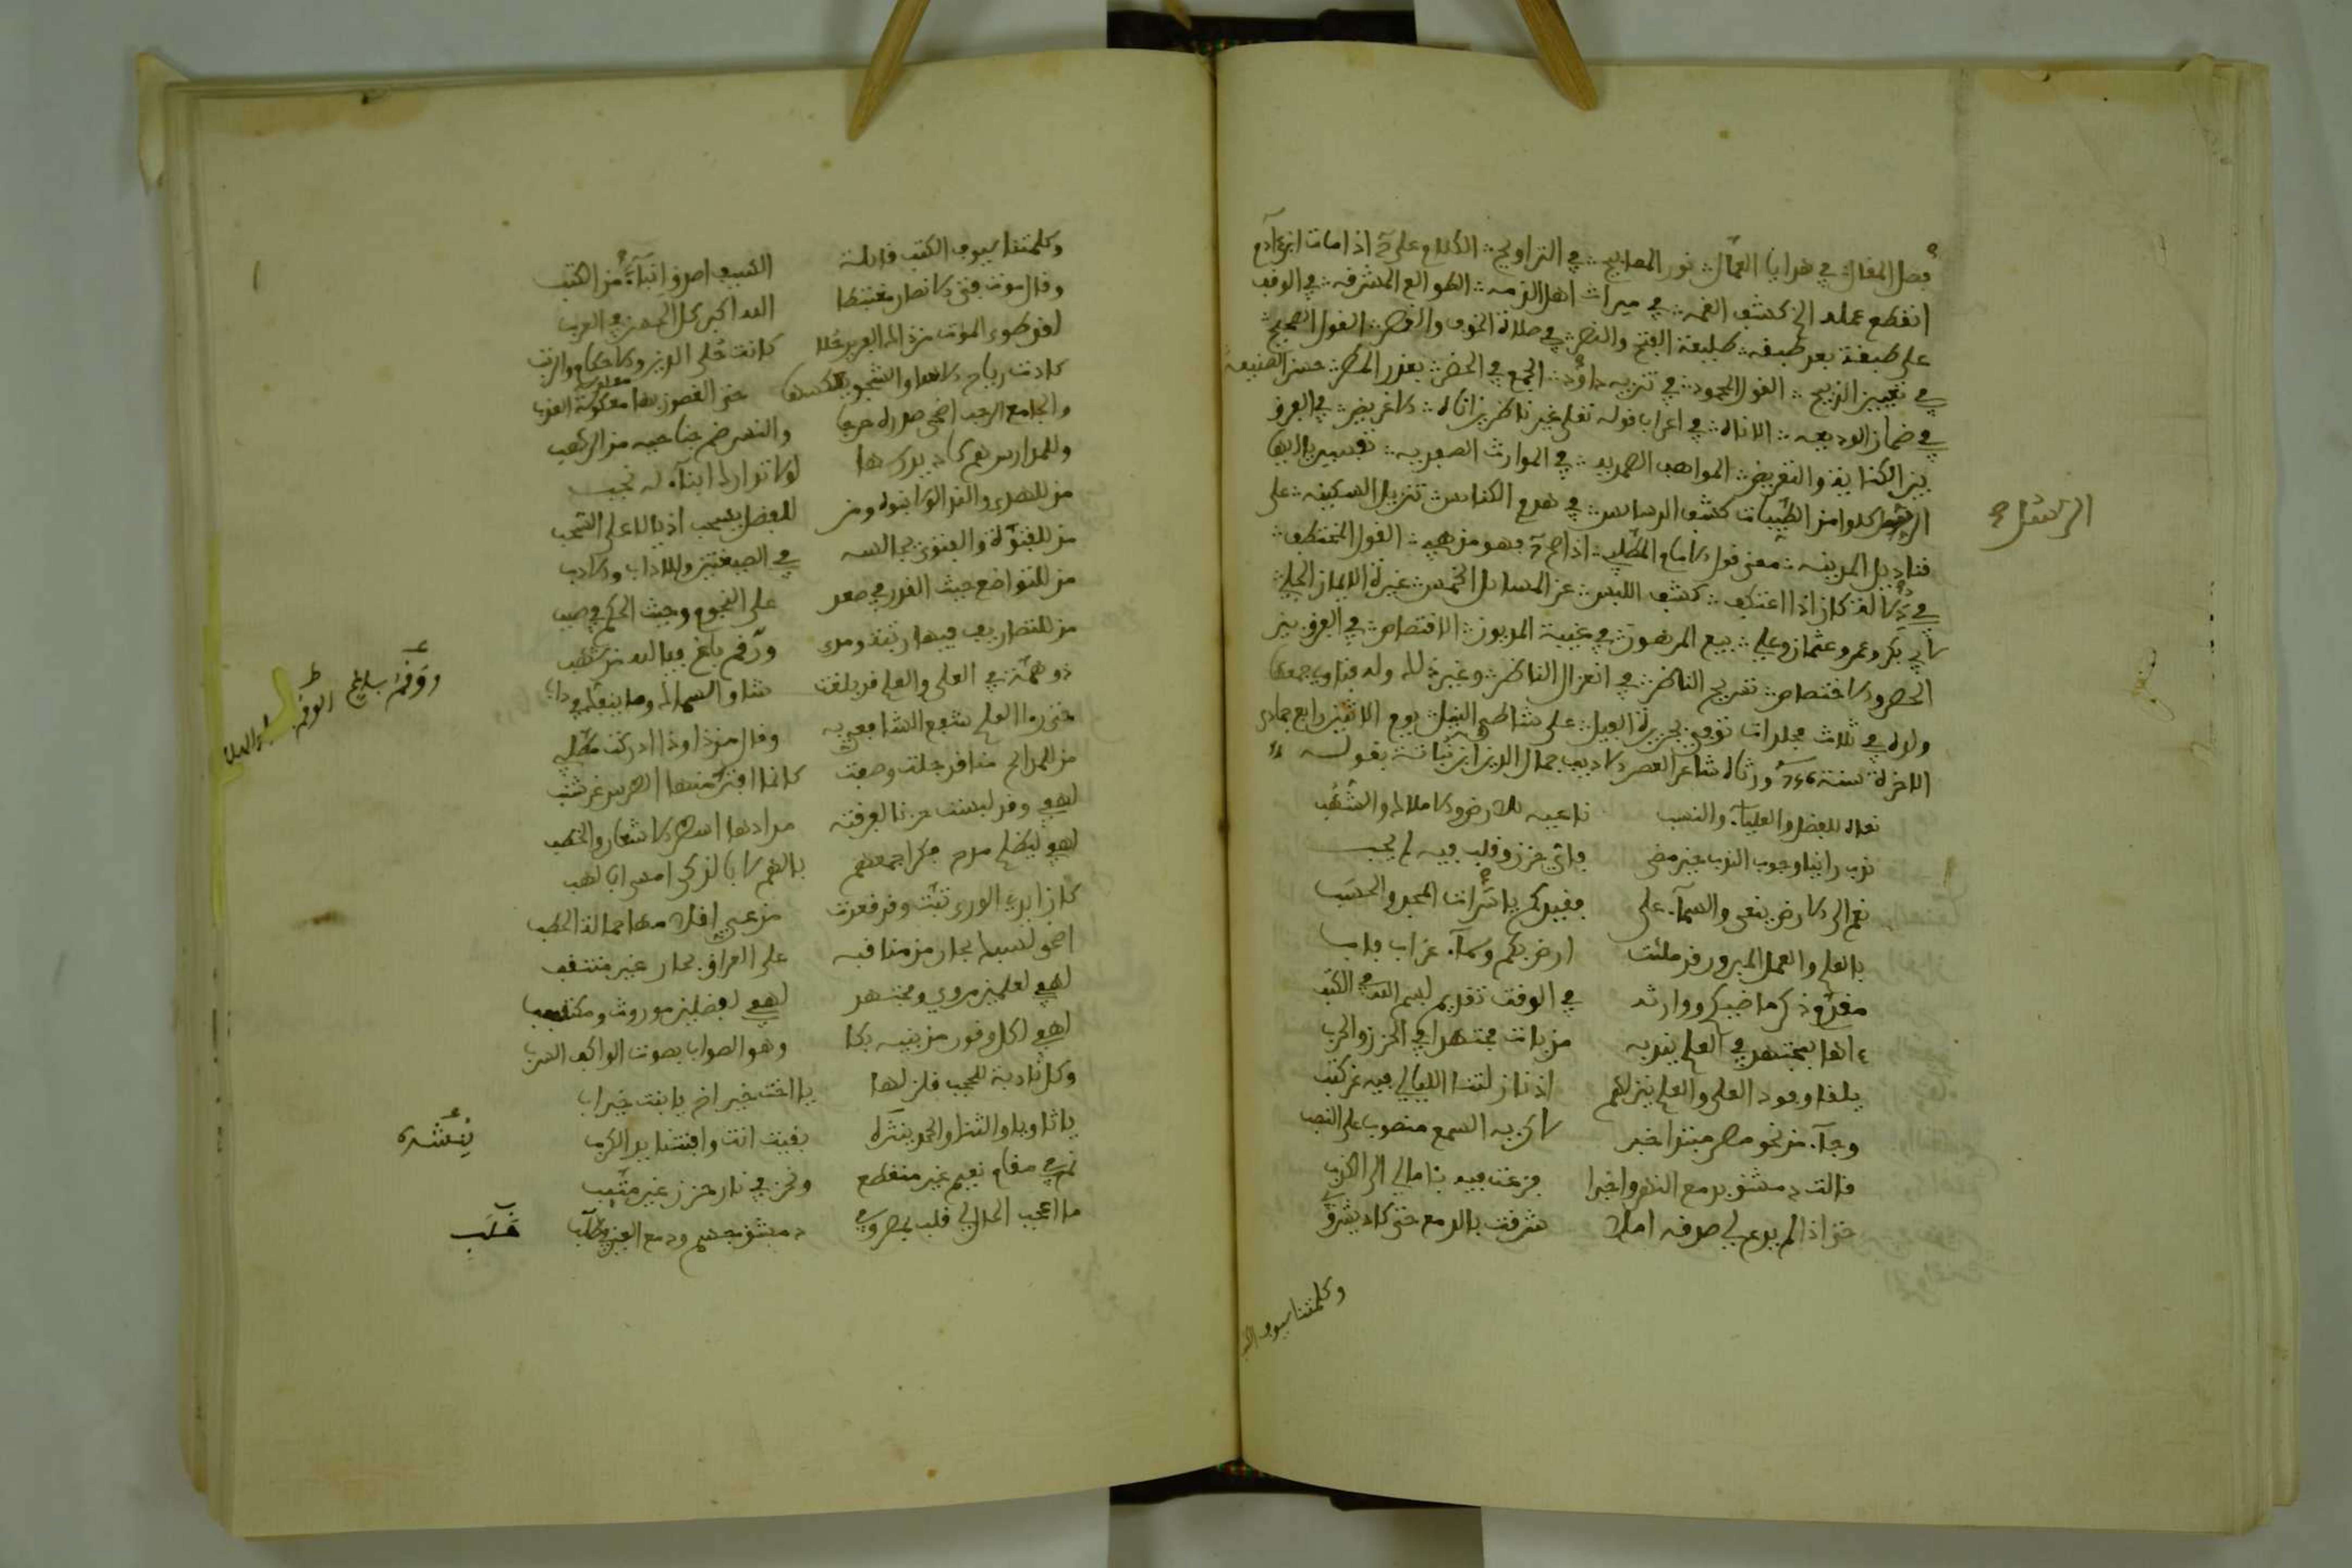 فصل المقال في هدايا العمال في نور المصابيح في التراويح الكلام على ق اذا مات ابن ءادم
انقطع عمله الخ كشف الغمه في ميراث اهل الذمه الطوالع المشرقه في الوقف
على طبقة بعد طبقه طليعة الفتح والنصر في صلاة الخوف والقصر القول الصحيح
في تعيين الذبيح القول المحمود في تنزيه داوود الجمع في الحضر بعذر المطر حسن الصنيعة
في ضمان الوديعه الاناه في اعراب قوله تعلى غير ناظرين اناه الاغريض في الفرق
بين الكناية والتعريض المواهب الصمديه في الموارث الصفديه تفسير يا ايها
الرسل كلوا من الطيبات كشف الدسايس في هدم الكنايس تنزيل السكينه على
الرسل ح
قناديل المدينه معنى قول الامام المطلبي اذا صح ق فهو مذهبي القول المختطف
في دلالة كان اذا اعتكف كشف اللبس عن المسايل الخمس غيرة الايمان الجلي
لابي بكر وعمر وعثمان وعلي بيع المرهون في غيبة المديون الاقتصاص في الفرق بين
الحصر والاختصاص تسريح الناظر في انعزال الناظر وغير ذلك وله فتاوي جمعها
ولده في ثلاث مجلدات توفي بجزيرة الفيل على شاطي النيل يوم الاثنين رابع جمادى
الاخرة سنة 756 ورثاه شاعر العصر الاديب جمال الدين ابن نباتة بقوله
نعاه للفضل والعلياء والنسب ناعيه للارض والاملاك والشهب
ندب راينا وجوب الندب حين مضى فاي حزن وقلب فيه لم يجب
نعم الى الارض ينعى والسماء على فقيدكم يا سراة المجد والحسب
بالعلم والعمل المبرور قد ملئت ارض بكم وسماء عن اب فاب
مقدم ذكر ماضيكم ووارثه في الوقت تقديم بسم الله في الكتب
ءاها لمجتهد في العلم يندبه من بات مجتهدا في الحزن والحرب
يلقا وفود العلى والعلم ينزلهم اذ نازلتنا الليالي فيه عن كثب
وجاء من نحو مصر مبتدا خبر لكن به السمع منصوب على النصب
قالت دمشق بدمع النهر واخبرا فزعت فيه بئامالي الى الكذب
حتى اذا لم يدع لي صدقه املا شرقت بالدمع حتى كاد يشرق
وكلمتنا سيوف الكتب
وكلمتنا سيوف الكتب قايلة السيف اصدق انباء من الكتب
وقال موت فتى الانصار مغتبطا الله اكبر كل الحسن في العرب
لقد طوى الموت من ذاك الفريد حلا كانت حلى الدين والاحكام والرتب
كادت رياح الاسا والشجو تعكسها حتى الغصون بها معكوسة العذب
والجامع الرحب اضحى صدره حرجا والنسر ضم جناحيه من الرهب
وللمدارس هم كاد يدرسها لولا تداركه ابناء له نجب
من للهدى والندا لولا بنوه ومن للفضل يسحب اذيالا على السحب
من للفتوة والفتوى مجالسه في الصيغتين وللاداب والادب
من للتواضع حيث القدر في صعد على النجوم وحيث الحكم في صبب
من للتصانيف فيها زينة وهدى ورقم باغ فيالله من شهب
ووقم بلاغ
ذو همة في العلى والعلم قد بلغت شاو السماك وما ينفك في داب
حتى را العلم شفع الشافعي به وقال من ذا وذا ادركت مطلبي
من للمدايح منا قد حلت وصفت كانما افتر منها الطرس عن شنب
لهفي وقد لبست حزنا لفرقته مدادها اسطر الاشعار والخطب
لهفي لنظم مدح فكر اجمعهم بالهم لا بالذكى امسى ابا لهب
كان ابدي الورى تبت وقد قعدت من عيي اقلامها حمالة الحطب
اضحى لسبك بحار من مناقبه على العراق بحار غير منتقب
لهفي لعلمين مروي ومجتهد لهفي لفضلين موروث ومكتسب
لهفي لكل وقور من بنيه بكا وهو الصواب بصوت الواكف السرب
وكل نادبة للحجب قلن لها يا اخت خير اخ يا بنت خير اب
يا ثاويا والثنا والحمد ينشره بقيت انت وافتتنا يد الكرب
ينشره
نم في مقام نعيم غير منقطع ونحن في نار حزن غير متئب
ما اعجب الحال لي قلب بمصر وفي دمشق جسم ودمع العين في حلب
حلب